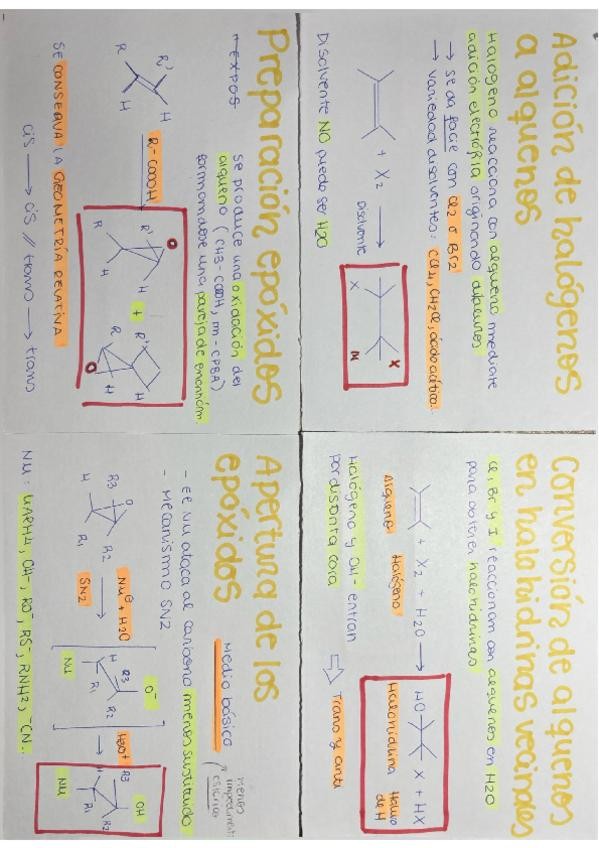 Adición de halógenos
a alquenos
Halógeno reacciona con alqueno mediante
adición electrófila originando dihaluros
→ se da fácil con Cl2 o Br2
→ variedad disolventes: CCl4, CH2Cl, ácido acético.
+ X2
Disolvente
X
X
Disolvente NO puede ser H2O
Conversión de alquenos
en halohidrinas vecinales
Cl, Br y I reaccionan con alquenos en H2O
para obtener halohidrinas
+ X2 + H2O →
HO
X + HX
Alqueno
Halógeno
Halohidrina
Haluro
de H
Halógeno y OH- entran
por distinta cara
Trans y anti
Preparación epóxidos
se produce una oxidación del
alqueno (CH3-COOH, m-CPBA)
formándose una pareja de enantióm.
R'
H
R
H
R-COOH
O
R'
H
R
H
+
R'
H
R
H
O
Se CONSERVA LA GEOMETRÍA RELATIVA
cis → cis // trans → trans
Apertura de los
epóxidos
Medio básico
menos
impedimento
estérico
- El Nu ataca al carbono menos sustituido
- Mecanismo SN2
R3
O
H
R1
R2
Nu⊖ + H2O
SN2
O-
R3
H
R1
R2
Nu
H3O+
OH
R3
H
R1
R2
Nu
Nu: LiAlH4, OH-, RO-, RS-, RNH2, -CN.